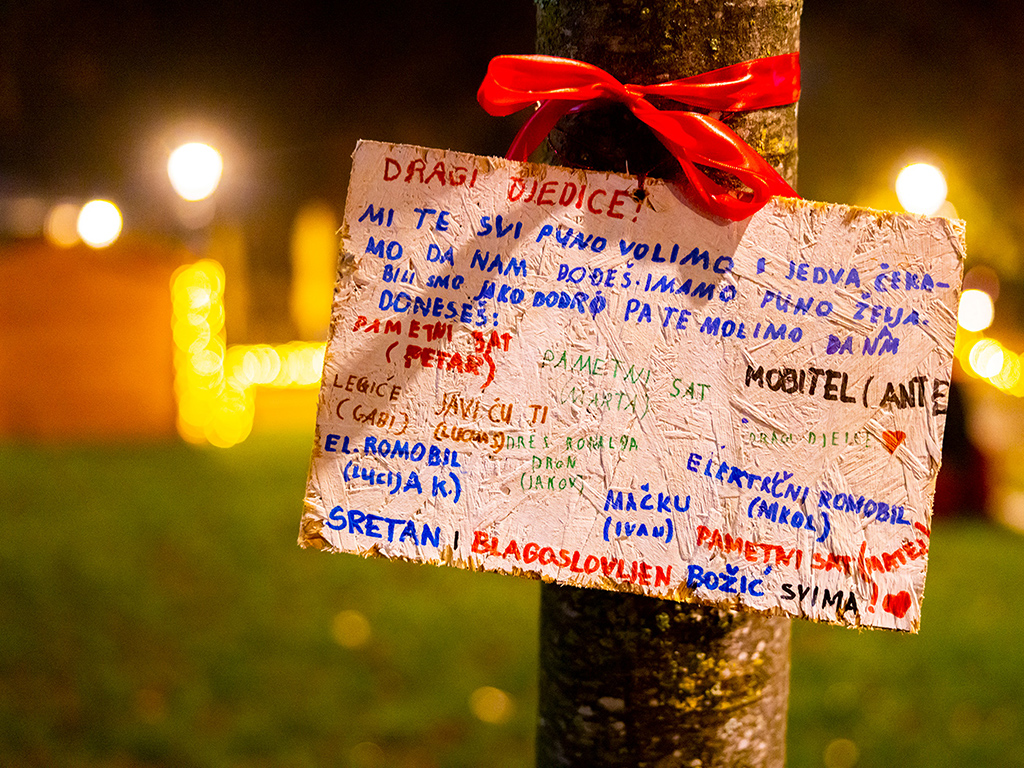 DRAGI DJEDICE!
MI TE SVI PUNO VOLIMO I JEDVA ČEKA-
MO DA NAM DOĐEŠ. IMAMO PUNO ŽELJA.
BILI SMO JAKO DOBRO PA TE MOLIMO DA NAM
DONESEŠ:
PAMETNI SAT
(PETAR)
PAMETNI SAT
(MARTA)
MOBITEL (ANTE
LEGIĆE
(GABI)
JAVIĆU TI
DRES RONALDA
DRON
(JAKOV)
DRAGI DJEDE
EL. ROMOBIL
(LUCIJA K.)
MAČKU
(IVAN)
ELEKTRČNI ROMOBIL
PAMETNI SAT (MATEJ)
SRETAN I BLAGOSLOVLJEN BOŽIĆ SVIMA!